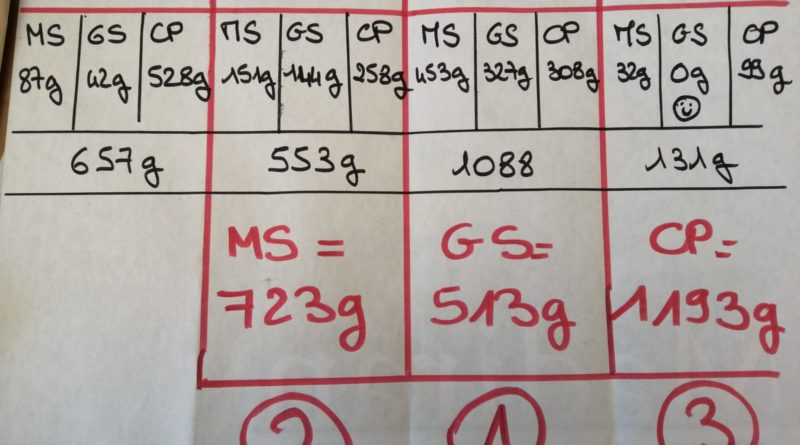 MS GS CP MS GS CP MS GS CP MS GS CP
87g 42g 528g 151g 144g 258g 453g 327g 308g 32g 0g 99g
657g 553g 1088 131g
MS = GS= CP=
723g 513g 1193g
2 1 3